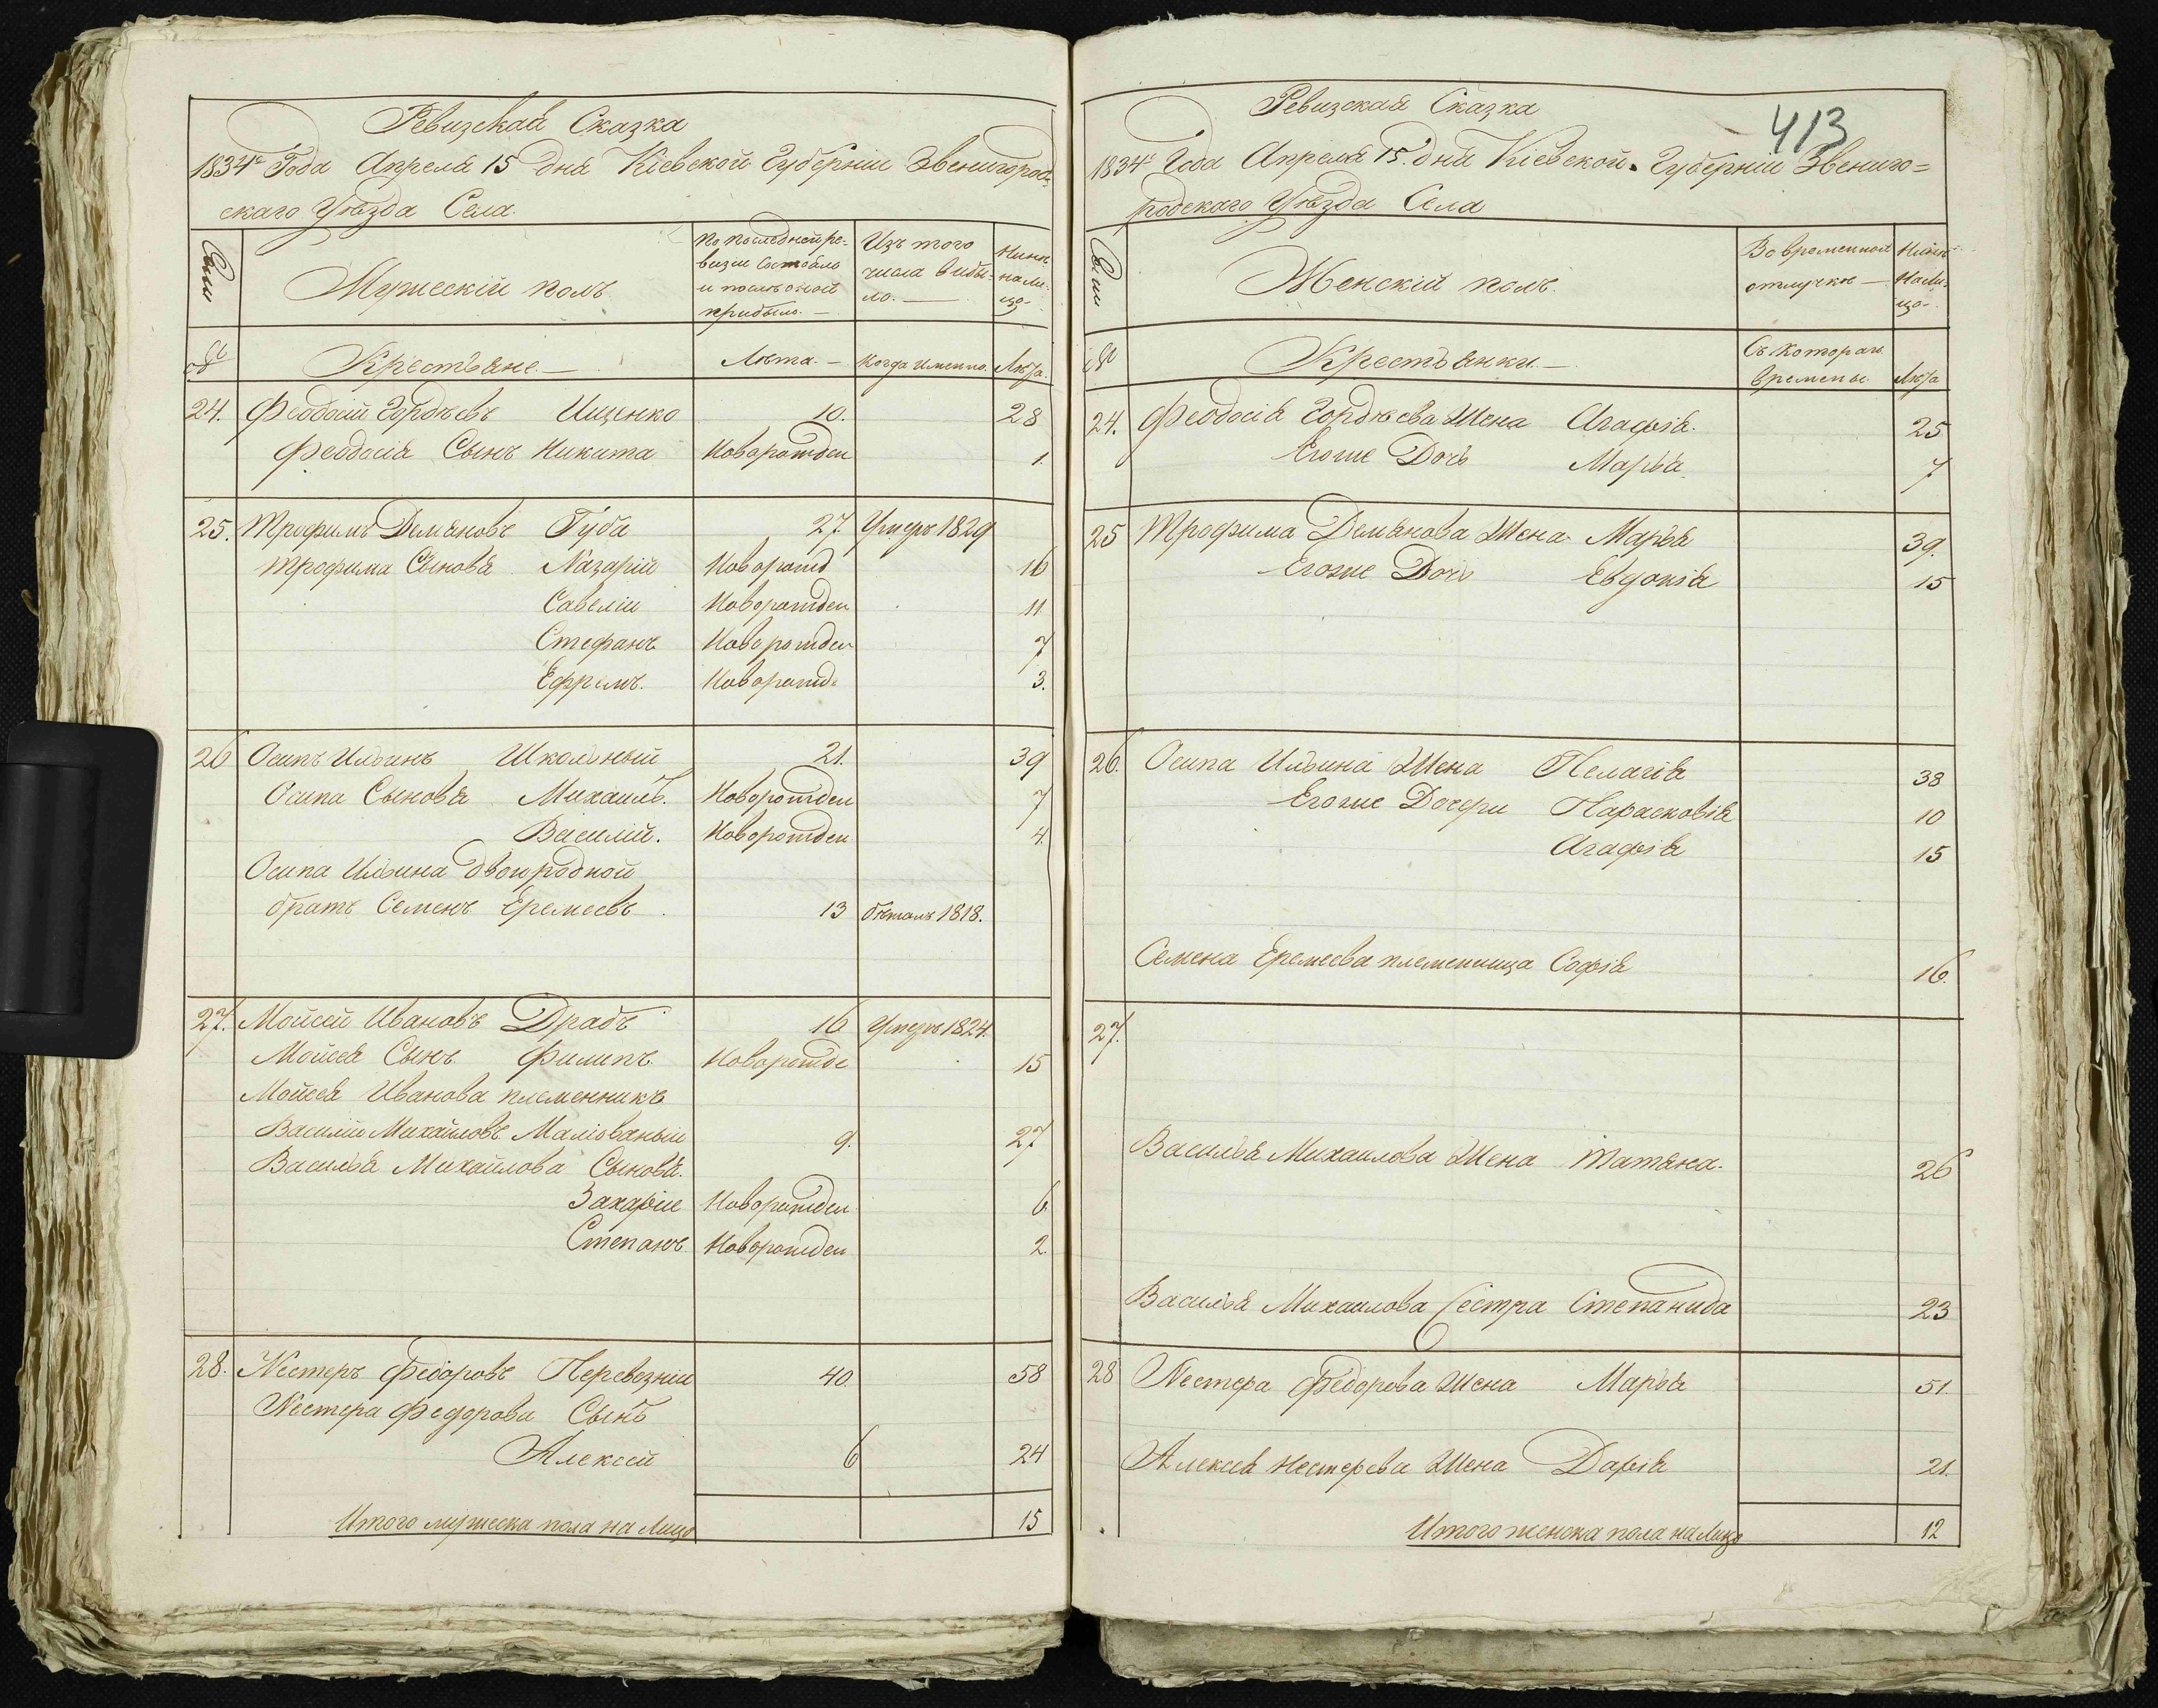 Ревизская Сказка
1834го Года Апреля 15 Дня Кіевской Губерніи Звенигород-
скаго Уѣзда Села
Семьи
Мужескій полъ
По последней ре-
визіи состояло
и послѣ оной
прибыло. —
Изъ того
числа выбы-
ло. —
Нынѣ
нали-
цо.
Крестьяне. —
Лѣта. —
Когда именно.
Лѣта.
24. Феодосій Гордѣевъ Ищенко 10. 28
Феодосія Сынъ Никита Новорожден 1.
25. Трофимъ Демяновъ Губа 27. Умеръ 1829
Трофима Сыновя Назарій Новорожд 16
Савелій Новорожден 11.
Стефанъ Новорожден 7
Ефремъ. Новорожд. 3.
26 Осипъ Ильинъ Школьный 21. 39
Осипа Сыновя Михаилъ. Новорожден 7
Василій. Новорожден 4.
Осипа Ильина двоюродной
братъ Семенъ Еремеевъ 13 бѣжалъ 1818.
27. Мойсей Ивановъ Драбъ 16 Умеръ 1824.
Мойсея Сынъ Филипъ Новорожде 15
Мойсея Иванова племенникъ
Василій Михайловъ Маліованый 9. 27
Василья Михайлова Сыновя.
Захарій Новорожден 6
Степанъ Новорожден 2.
28. Нестеръ Федоровъ Перевезній 40. 58
Нестера Федорова Сынъ
Алексей 6 24
Итого мужеска пола на лицо 15
413
Ревизская Сказка
1834го Года Апреля 15. дня Кіевской Губерніи Звениго=
родскаго Уѣзда Села
Семьи
Женскій полъ.
Во временной
отлучкѣ —
Нынѣ
нали-
цо.
Крестьянки. —
Съ котораго
времены.
Лѣта
24. Феодосія Гордѣева Жена Агафія. 25
Егоже Дочь Марья 7
25 Трофима Демянова Жена Марья 39.
Егоже Дочь Евдокія 15
26. Осипа Ильина Жена Пелагія 38
Егоже Дочери Парасковія 10
Агафія 15
Семена Еремеева племенница Софія 16.
27.
Василья Михаилова Жена Татяна. 26
Василья Михаилова Сестра Степанида 23
28 Нестера Федорова Жена Марья 51.
Алексея Нестерова Жена Дарія 21.
Итого женска пола на лицо 12